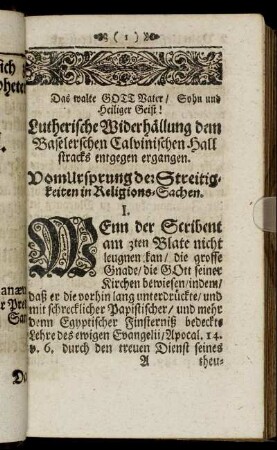 ( 1 )
Das walte GOTT Vater/ Sohn und
Heiliger Geist!
Lutherische Widerhällung dem
Baselerschen Calvinischen-Hall
stracks entgegen ergangen.
Vom Ursprung der Streitig-
keiten in Religions-Sachen.
I.
WEnn der Scribent
am 3ten Blate nicht
leugnen kan/ die grosse
Gnade/ die GOtt seiner
Kirchen bewiesen/indem/
daß er die vorhin lang unterdrückte/ und
mit schrecklicher Papistischer/ und mehr
denn Egyptischer Finsterniß bedeckte
Lehre des ewigen Evangelii/Apocal. 14.
v. 6. durch den treuen Dienst seines
A theu-